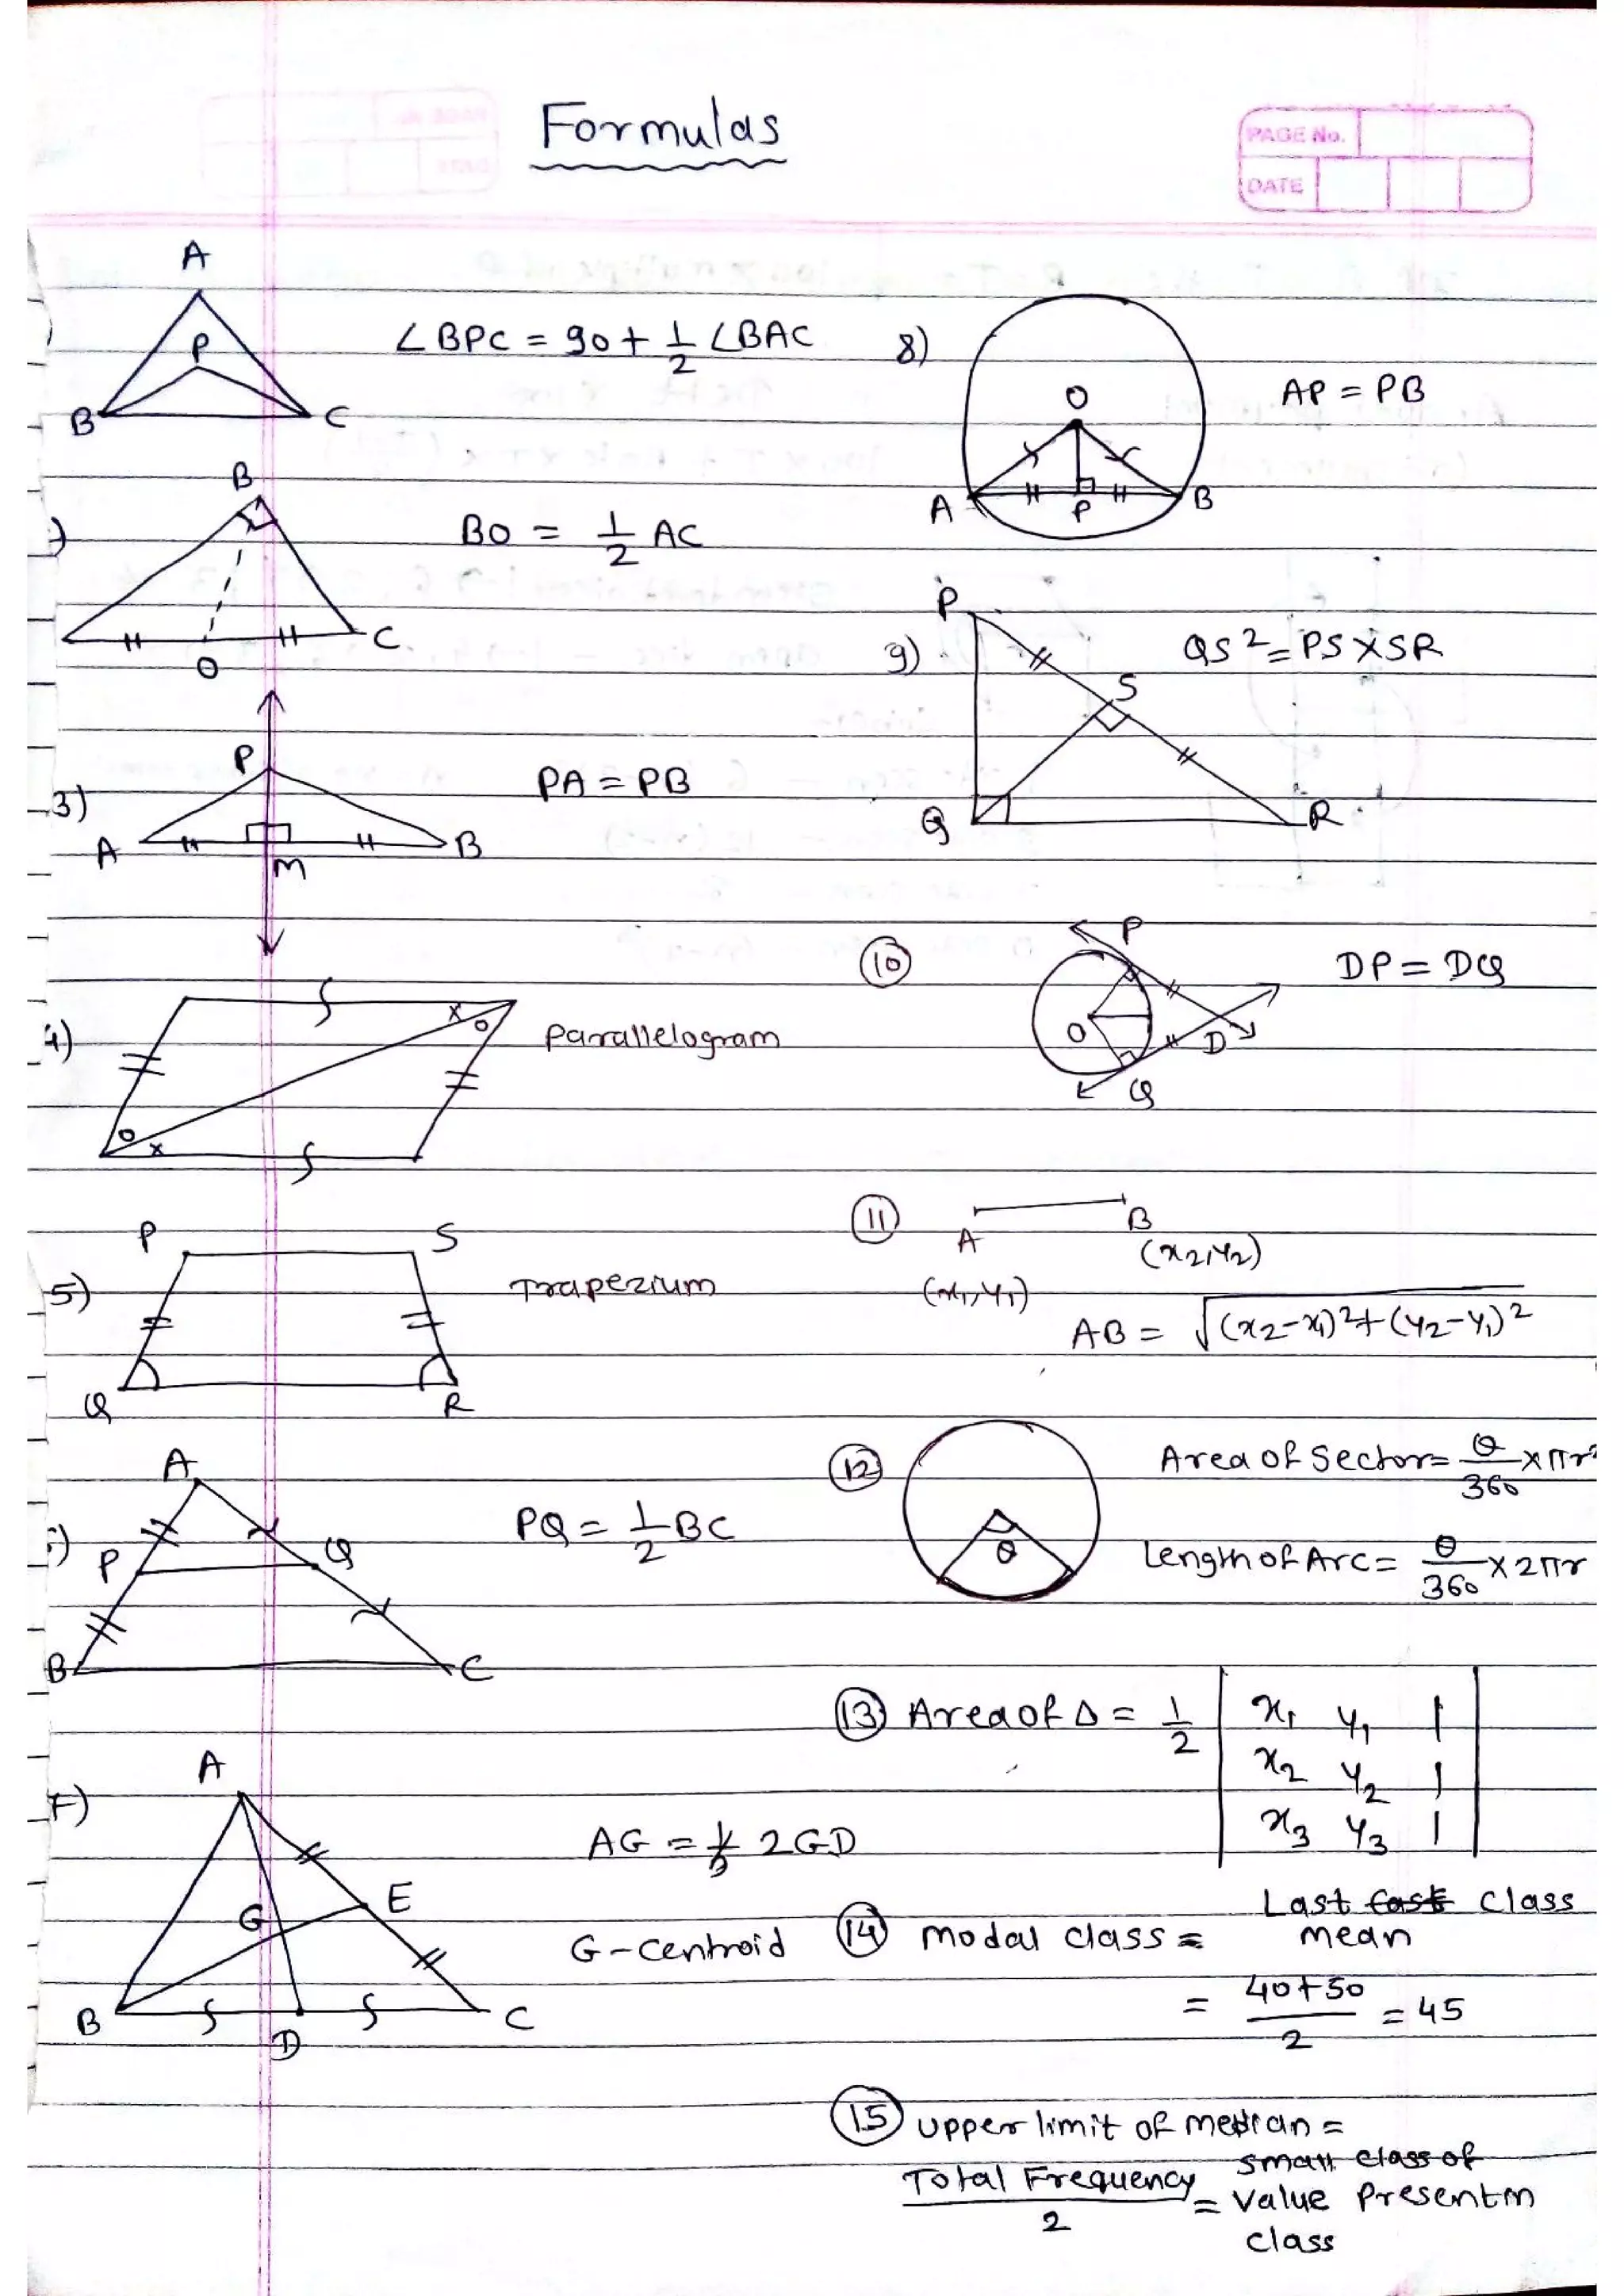 Formulas
PAGE No.
DATE
A
P
B C
∠BPC = 90 + 1/2 ∠BAC
B
O
C
BO = 1/2 AC
3)
P
A B
M
PA = PB
4)
x o
o x
parallelogram
5)
P S
Q R
Trapezium
A
P Q
B C
PQ = 1/2 BC
7)
A
G E
B D C
AG = 2GD
G - centroid
8)
O
A P B
AP = PB
9)
P
S
Q R
QS² = PS × SR
10
P
O D
Q
DP = DQ
11
A B
(x1, y1) (x2, y2)
AB = √(x2-x1)²+(y2-y1)²
12
θ
Area of Sector = θ/360 × πr²
Length of Arc = θ/360 × 2πr
13 Area of Δ = 1/2 | x1 y1 1 |
| x2 y2 1 |
| x3 y3 1 |
14 modal class = Last class
mean
= 40+50/2 = 45
15 upper limit of median =
small class of
Total Frequency/2 = value present in
class